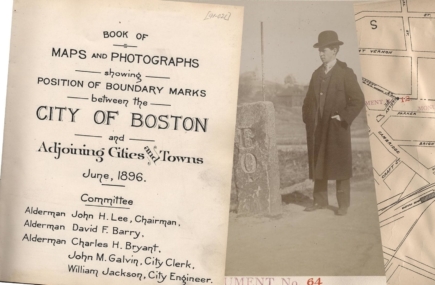 BOOK OF
MAPS AND PHOTOGRAPHS
showing
POSITION OF BOUNDARY MARKS
between the
CITY OF BOSTON
and
Adjoining Cities and Towns
June, 1896.
Committee
Alderman John H. Lee, Chairman.
Alderman David F. Barry.
Alderman Charles H. Bryant.
John M. Galvin, City Clerk.
William Jackson, City Engineer.
UMENT No. 64
S
VERNON